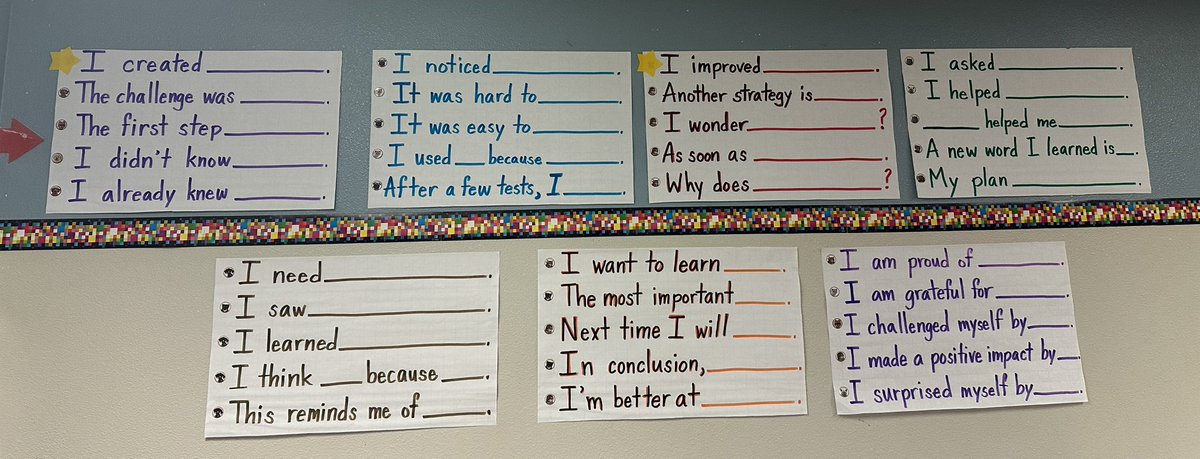 I created ________.
The challenge was ________.
The first step ________.
I didn't know ________.
I already knew ________.
I noticed ________.
It was hard to ________.
It was easy to ________.
I used ___ because ________.
After a few tests, I ______.
I improved ________.
Another strategy is ________.
I wonder ________?
As soon as ________.
Why does ________?
I asked ________.
I helped ________.
______ helped me ________.
A new word I learned is __.
My plan ________.
I need ________.
I saw ________.
I learned ________.
I think ___ because ____.
This reminds me of ______.
I want to learn ______.
The most important ______.
Next time I will ______.
In conclusion, ________.
I'm better at ________.
I am proud of ________.
I am grateful for ________.
I challenged myself by ____.
I made a positive impact by __.
I surprised myself by ____.